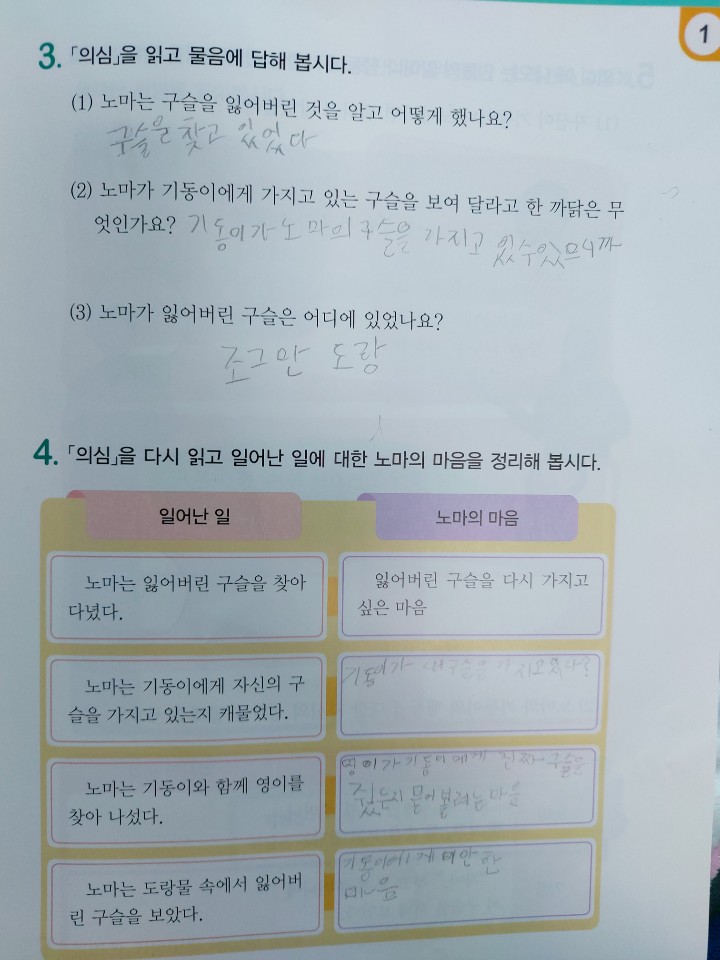 1
3. 「의심」을 읽고 물음에 답해 봅시다.
(1) 노마는 구슬을 잃어버린 것을 알고 어떻게 했나요?
구슬을 찾고 있었다
(2) 노마가 기동이에게 가지고 있는 구슬을 보여 달라고 한 까닭은 무
엇인가요? 기동이가 노마의 구슬을 가지고 있 수있므니까
(3) 노마가 잃어버린 구슬은 어디에 있었나요?
조그만 도랑
4. 「의심」을 다시 읽고 일어난 일에 대한 노마의 마음을 정리해 봅시다.
일어난 일
노마의 마음
노마는 잃어버린 구슬을 찾아
다녔다.
잃어버린 구슬을 다시 가지고
싶은 마음
노마는 기동이에게 자신의 구
슬을 가지고 있는지 캐물었다.
기동이가 내구슬을
노마는 기동이와 함께 영이를
찾아 나섰다.
영이가 기동이에게 진짜 구슬을
줬는지 물어볼려는 마음
노마는 도랑물 속에서 잃어버
린 구슬을 보았다.
기동이에게 미안한
마음